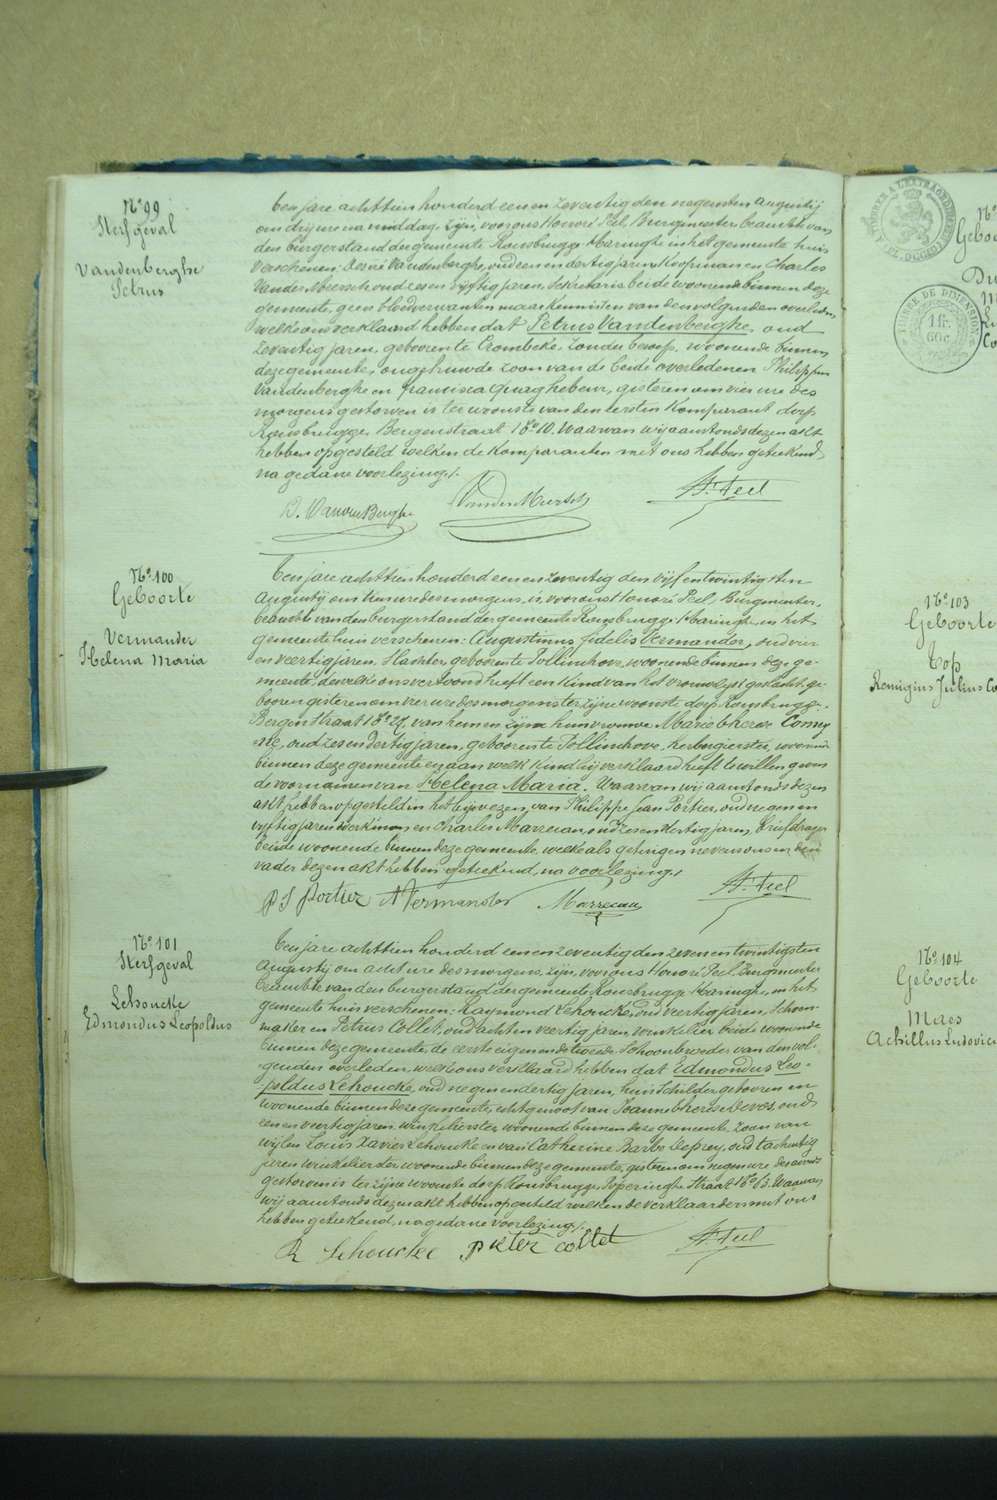 N° 99
Sterfgeval
Vandenberghe
Petrus
Ten jare achttien honderd een en zeventig den negensten Augustij
om drij ure na middag, zijn, voor ons Honoré Peel, Burgmeester, beambte van
den burgerstand der gemeente Rousbrugge-Haringhe in het gemeente huis
verschenen: Desiré Vandenberghe, oud een en dertig jaren Koopman en Charles
Vander Meersch oud zes en vijftig jaren, Sekretaris beide woonende binnen deze
gemeente, geen bloedverwanten maar kennissen van den volgenden overleden,
welke ons verklaard hebben dat Petrus Vandenberghe, oud
zeventig jaren, geboren te Crombeke, zonder beroep, woonende binnen
deze gemeente, ongehuwde zoon van de beide overledenen Philippus
Vandenberghe en Francisca Quaghebeur, gisteren om vier ure des
morgens gestorven is ter woonste van den eersten Komparant dorp
Rousbrugge, Bergenstraat N° 10. Waarvan wij aanstonds dezen akt
hebben opgesteld welken de Komparanten met ons hebben geteekend,
na gedane voorlezing./.
D. VandenBerghe VanderMeersch H. Peel
N° 100
Geboorte
Vermander
Helena Maria
Ten jare achttien honderd een en zeventig den vijf en twintigsten
Augustij om tien ure des morgens, is, voor ons Honoré Peel, Burgmeester,
beambte van den burgerstand der gemeente Rousbrugge-Haringhe, in het
gemeente huis verschenen: Augustinus Fidelis Vermander, oud vier
en veertig jaren, Slachter, geboren te Pollinchove, woonende binnen deze ge-
meente, dewelke ons vertoond heeft een kind van het vrouwelijk geslacht, ge-
boren gisteren om vier ure des morgens ter zijne woonste dorp Rousbrugge,
Bergenstraat N° 27, van hem en zijne huisvrouwe Marie Therese Conny-
ne, oud zes en dertig jaren, geboren te Pollinchove, Herbergierster, woonende
binnen deze gemeente en aan welk kind hij verklaard heeft te willen geven
de voornamen van Helena Maria. Waarvan wij aanstonds dezen
akt hebben opgesteld in het bijwezen van Philippe Jean Portier, oud negen en
vijftig jaren Werkman en Charles Marrecau, oud zes en dertig jaren, Briefdrager
beide woonende binnen deze gemeente, welke als getuigen nevens ons en den
vader dezen akt hebben geteekend, na voorlezing./.
P J Portier A Vermander Marrecau H. Peel
N° 101
Sterfgeval
Lehoucke
Edmondus Leopoldus
Ten jare achttien honderd een en zeventig den zeven en twintigsten
Augustij om acht ure des morgens, zijn, voor ons Honoré Peel Burgmeester
beambte van den burgerstand der gemeente Rousbrugge-Haringhe, in het
gemeente huis verschenen: Raymond Lehoucke, oud veertig jaren, Schoen-
maker en Petrus Collet, oud acht en veertig jaren, winkelier beide woonende
binnen deze gemeente, de eerste eigen en de tweede Schoonbroeder van den vol-
genden overleden, welke ons verklaard hebben dat Edmondus Leo-
poldus Lehoucke, oud negen en dertig Jaren, huis Schilder, geboren en
woonende binnen deze gemeente, echtgenoot van Joanne Therese Deves, oud
een en veertig jaren winkelierster, woonende binnen deze gemeente. Zoon van
wijlen Louis Xavier Lehoucke en van Catherine Barbe Deprey, oud tachentig
jaren winkelierster woonende binnen deze gemeente, gisteren om negen ure des avonds
gestorven is ter zijne woonste dorp Rousbrugge, Poperinghe Straat N° 63. Waarvan
wij aanstonds dezen akt hebben opgesteld welken de verklaarders met ons
hebben geteekend, na gedane voorlezing./.
R Lehoucke pieter collet H. Peel
TIMBRE DE DIMENSION
1 fr.
60 c.
N° 103
Geboorte
Top
Remigius Julius Co
N° 104
Geboorte
Maes
Achillus Ludovicu